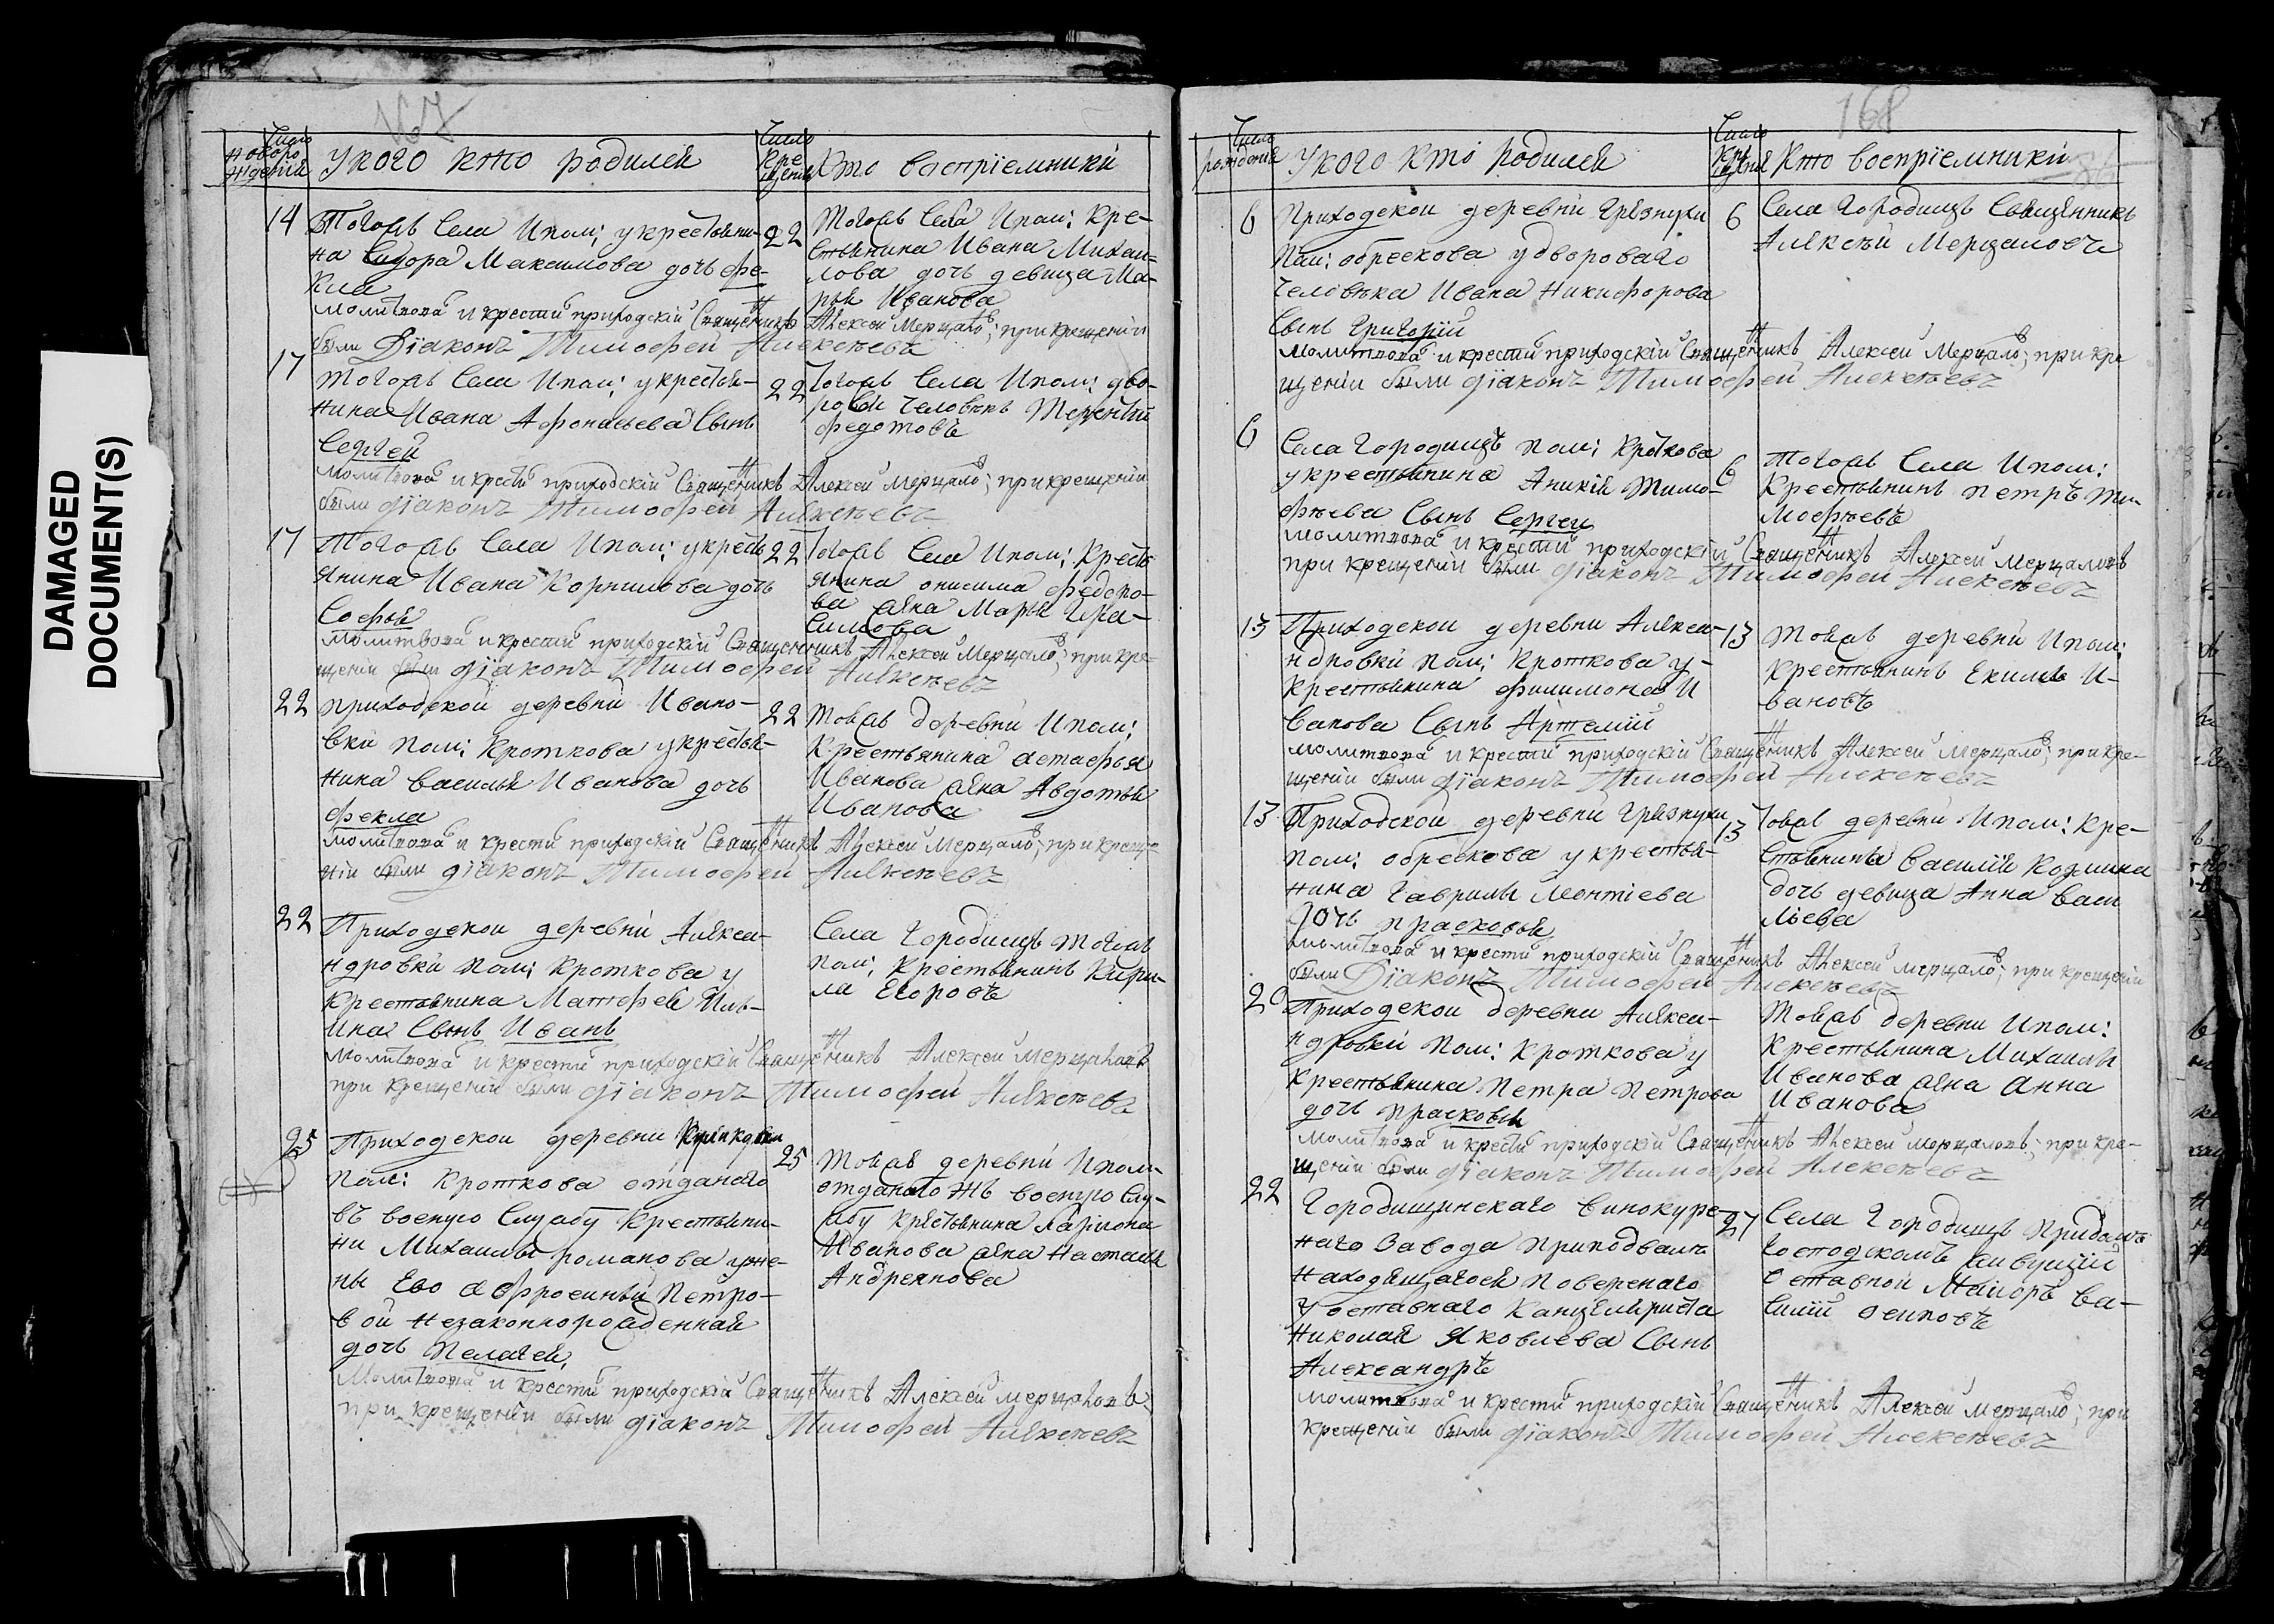 DAMAGED
DOCUMENT(S)
167
Число
новоро
ждений
У кого кто родился
Число
кре
щения
Кто восприемники
14
Тогожъ Села Ипом: укрестьяни-
на Сидора Максимова дочь фе-
кла
22
Тогожъ Села Ипом: кре-
стьянина Ивана Михаи-
лова дочь девица Ма-
рья Иванова
молитвовалъ и крестилъ приходскій Священникъ Алексей Мерцало; при крещеніи
были Діаконъ Тимофей Алексѣевъ
17
Тогожъ Села Ипом: укрестья-
нина Ивана Афонасьева Сынъ
Сергей
22
Тогожъ Села Ипом: дво-
ровой человѣкъ Терентий
федотовъ
молитвовалъ и крестилъ приходскій Священникъ Алексей Мерцало; при крещеніи
были діаконъ Тимофей Алексѣевъ
17
Тогожъ Села Ипом: укресть
янина Ивана Корнилова дочь
Софья
22
Тогожъ Села Ипом: Кресть
янина онисима федоро-
ва жена Марья Гера-
симова
молитвовалъ и крестилъ приходскій Священникъ Алексей Мерцало; при кре-
щеніи были діаконъ Тимофей Алексѣевъ
22
приходской деревни Ивано-
вки пом: Кроткова укрестья-
нина василья Иванова дочь
фекла
22
Тояжъ деревни Ипом:
Крестьянина астафья
Иванова жена Авдотья
Иванова
молитвовалъ и крестилъ приходскій Священникъ Алексей Мерцало; при креще-
ніи были діаконъ Тимофей Алексѣевъ
22
Приходской деревни Алекса-
ндровки пом: Кроткова у
крестьянина Матфея Иль-
ина Сынъ Иванъ
Села Городищъ тогожъ
пом: Крестьянинъ Кири-
ла Егоровъ
молитвовалъ и крестилъ приходскій Священникъ Алексей Мерцаловъ
при крещеніи были діаконъ Тимофей Алексѣевъ
25
Приходской деревни
пом: Кроткова отданаго
въ военую Службу Крестьяни-
на Михаилы романова уже-
ны Его Афросиньи Петро-
вой незаконнорожденная
дочь Пелагея.
25
Тояжъ деревни Ипом:
отданаго жъ военую Слу-
жбу крестьянина Лариона
Иванова жена Настасья
Андреянова
Молитвовалъ и крестилъ приходскій Священникъ Алексей Мерцаловъ
при крещеніи были діаконъ Тимофей Алексѣевъ
168
Число
рожденія
У кого кто родился
Число
кре
щенія
Кто восприемники
6
Приходской деревни Грязнухи
Пом: обрескова удвороваго
человѣка Ивана Никифорова
Сынъ Григорій
6
Села Городищъ Священникъ
Алексѣй Мерцаловъ
молитвовалъ и крестилъ приходскій Священникъ Алексей Мерцало; при кре
щеніи были діаконъ Тимофей Алексѣевъ
6
Села Городищъ пом: Кроткова
укрестьянина Аникія Тимо-
фѣева Сынъ Сергей
6
Тогожъ Села Ипом:
Крестьянинъ Петръ Ти-
мофѣевъ
молитвовалъ и крестилъ приходскій Священникъ Алексей Мерцаловъ
при крещеніи были діаконъ Тимофей Алексѣевъ
13
Приходской деревни Алекса-
ндровки пом: Кроткова у-
крестьянина филимона И
ванова Сынъ Артемій
13
Тояжъ деревни Ипом:
Крестьянинъ Екимъ И-
вановъ
молитвовалъ и крестилъ приходскій Священникъ Алексей Мерцало; при кре-
щеніи были діаконъ Тимофей Алексѣевъ
13
Приходской деревни Грязнухи
пом: обрескова укрестья-
нина Гаврилы Леонтіева
дочь прасковья
13
Тояжъ деревни Ипом: Кре-
стьянина Василія Козмина
дочь девица Анна Васи
льева
молитвовалъ и крестилъ приходскій Священникъ Алексей мерцало; при крещеніи
были Діаконъ Тимофей Алексѣевъ
20
Приходской деревни Алекса-
ндровки пом: Кроткова у
крестьянина Петра Петрова
дочь прасковья
Тояжъ деревни Ипом:
Крестьянина Михаилы
Иванова жена Анна
Иванова
молитвовалъ и крестилъ приходскій Священникъ Алексей мерцаловъ; при кре-
щеніи были діаконъ Тимофей Алексѣевъ
22
Городищинскаго винокуре-
наго Завода приподвалѣ
находящагося повереннаго
Уоставнаго Канцеляриста
Николая Яковлева Сынъ
Александръ
27
Села Городищъ придомѣ
Господскомъ живущій
оставной Маіоръ Ва-
силій осиповъ
молитвовалъ и крестилъ приходскій Священникъ Алексей мерцало; при
крещеніи были діаконъ Тимофей Алексѣевъ